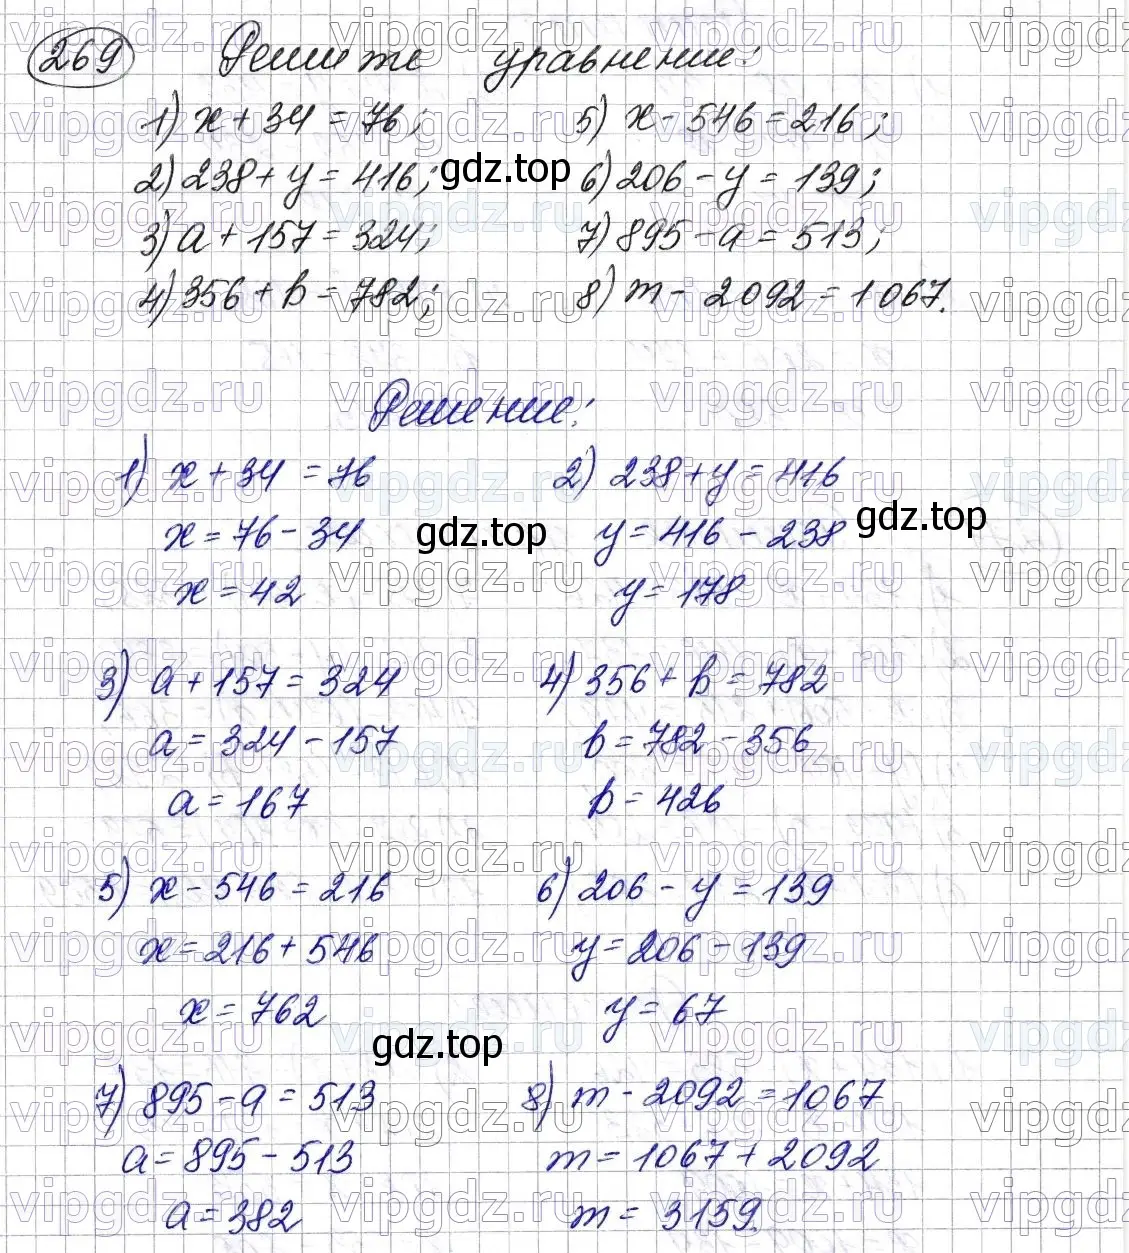 269 Решите уравнение:
1) x + 34 = 76; 5) x - 546 = 216;
2) 238 + y = 416; gdz.top 6) 206 - y = 139;
3) a + 157 = 324; 7) 895 - a = 513;
4) 356 + b = 782; 8) m - 2092 = 1067.
Решение:
1) x + 34 = 76 2) 238 + y = 416
x = 76 - 34 gdz.top y = 416 - 238 gdz.top
x = 42 y = 178
3) a + 157 = 324 4) 356 + b = 782
a = 324 - 157 b = 782 - 356
a = 167 b = 426
5) x - 546 = 216 6) 206 - y = 139
x = 216 + 546 y = 206 - 139
x = 762 y = 67
gdz.top
7) 895 - a = 513 8) m - 2092 = 1067
a = 895 - 513 m = 1067 + 2092
a = 382 m = 3159.